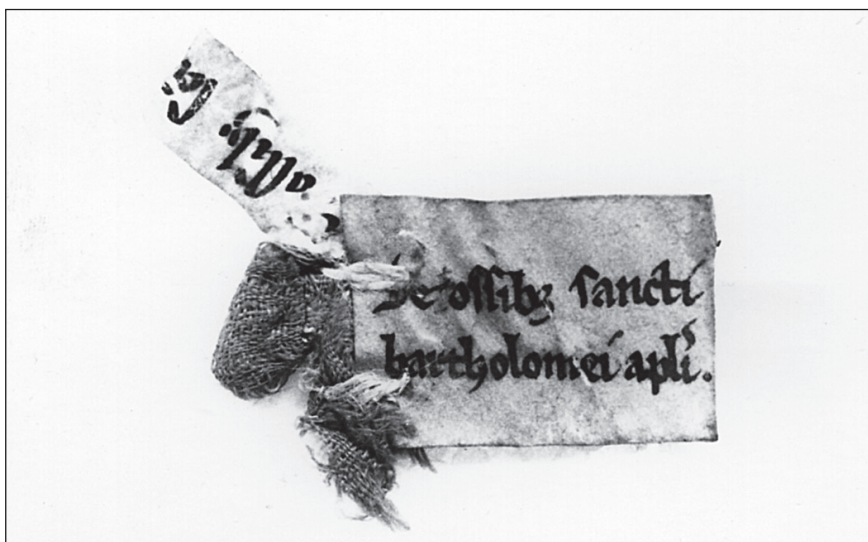 De ossibꝫ sancti
bartholomei apl̅i.